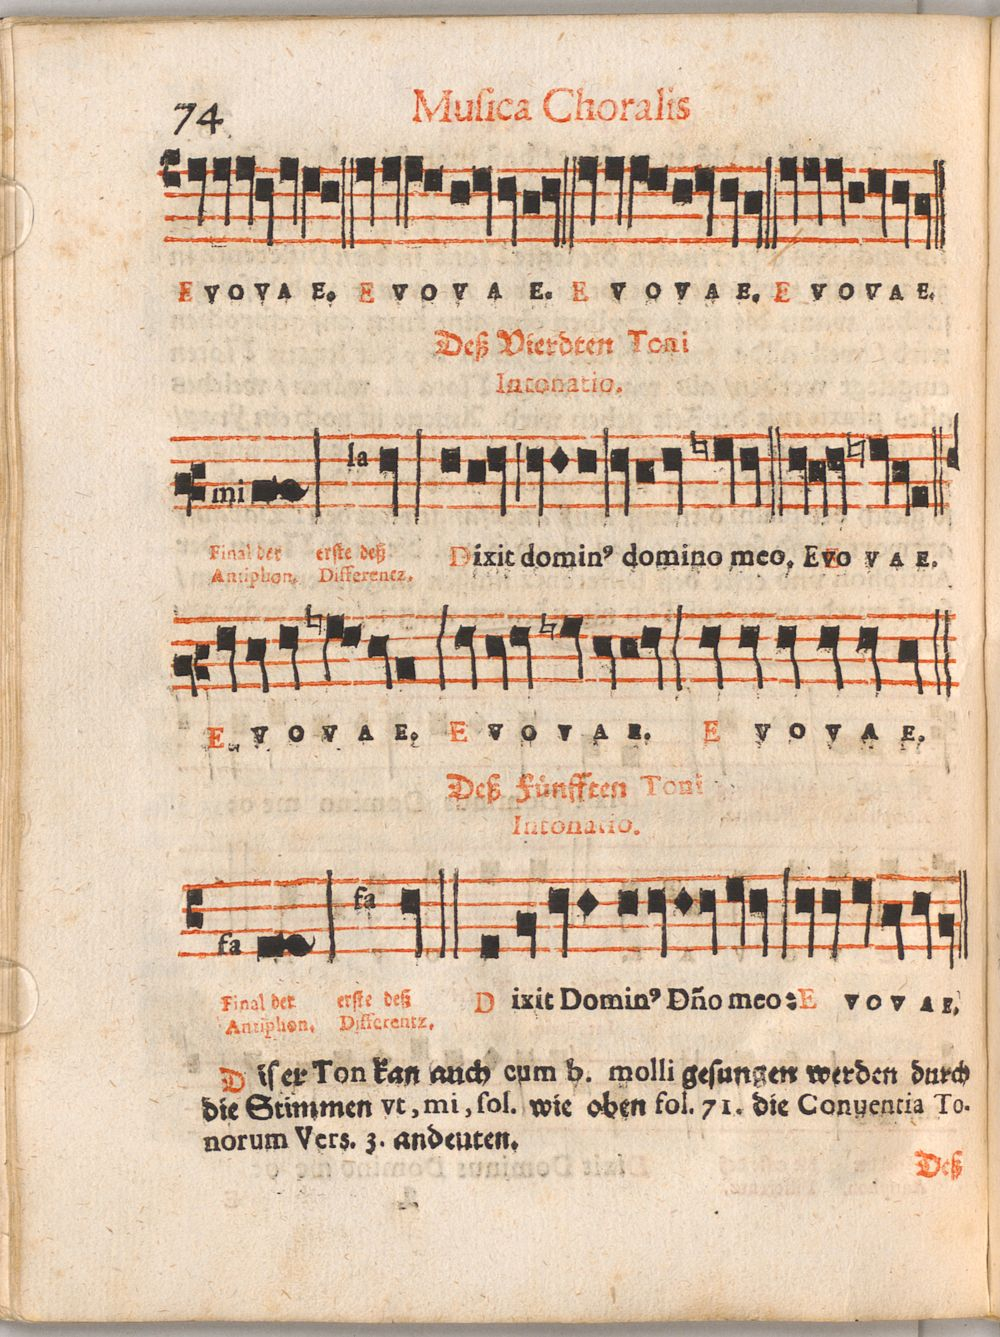 74
Musica Choralis
E V O V A E. E V O V A E. E V O V A E. E V O V A E.
Deß Vierdten Toni
Intonatio.
mi la
Final der erste deß Dixit domin⁹ domino meo. Evo V A E.
Antiphon. Differentz.
E V O V A E. E V O V A E. E V O V A E.
Deß Fünfften Toni
Intonatio.
fa fa
Final der erste deß Dixit Domin⁹ Dño meo: E V O V A E.
Antiphon. Differentz.
Diser Ton kan auch cum b. molli gesungen werden durch
die Stimmen vt, mi, sol. wie oben fol. 71. die Conuentia To-
norum Vers. 3. andeuten.
Deß